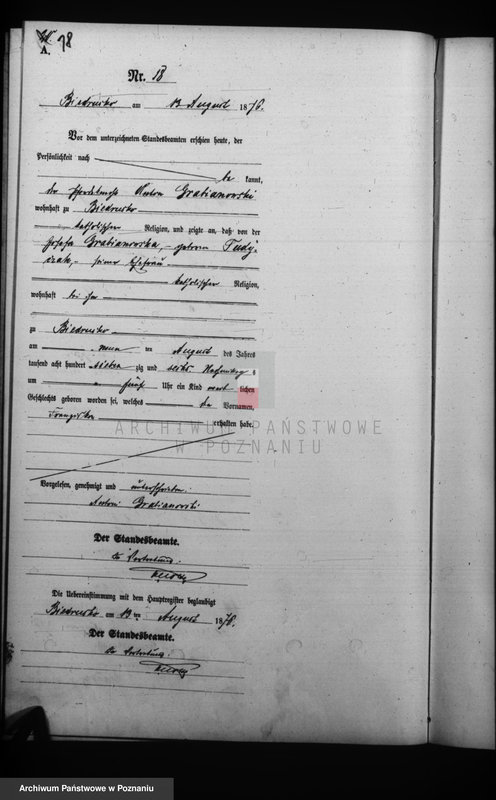 78
A.
Nr. 18
Biedrusko am 13 August 1876.
Vor dem unterzeichneten Standesbeamten erschien heute, der
Persönlichkeit nach be kannt,
der Anton Grabianowski
wohnhaft zu Biedrusko
katholischer Religion, und zeigte an, daß von der
Josefa Grabianowska, geborene Tudy
czak, seiner Ehefrau
katholischer Religion,
wohnhaft bei ihm
zu Biedrusko
am neun ten August des Jahres
tausend acht hundert sieben zig und sechs Nachmittag s
um fünf Uhr ein Kind weib lichen
Geschlechts geboren worden sei, welches die Vornamen,
Franziska
erhalten habe.
Vorgelesen, genehmigt und unterschrieben.
Antoni Grabianowski
Der Standesbeamte.
In Vertretung.
Die Uebereinstimmung mit dem Hauptregister beglaubigt
Biedrusko am 13 ten August 1876.
Der Standesbeamte.
In Vertretung.
ARCHIWUM PAŃSTWOWE
W POZNANIU
Archiwum Państwowe w Poznaniu